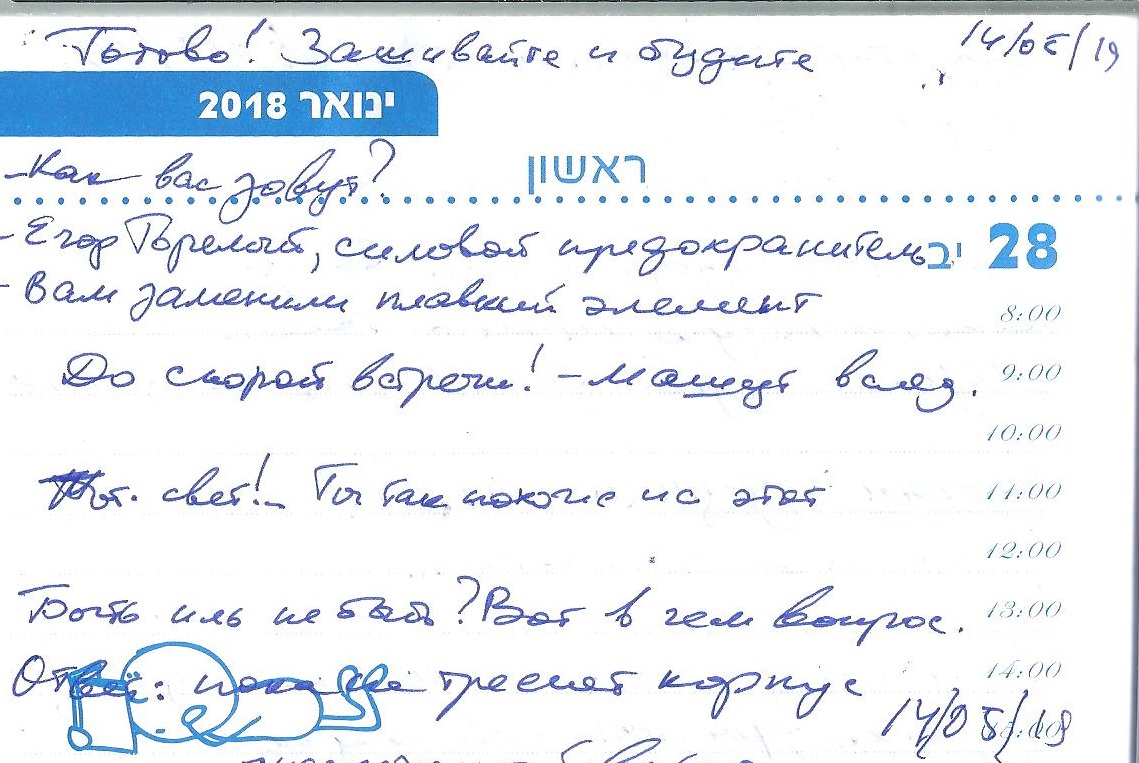 Готово! Зашивайте и будите 14/05/19
ינואר 2018
- Как вас зовут?
ראשון
- Егор Горелый, силовой предохранитель
יב 28
- Вам заменили плавкий элемент
8:00
До скорой встречи! - Машут вслед.
9:00
10:00
Тот свет! - Ты так похож на этот
11:00
12:00
Быть иль не быть? Вот в чем вопрос.
13:00
Ответ: пока не треснет корпус
14:00
14/05/19